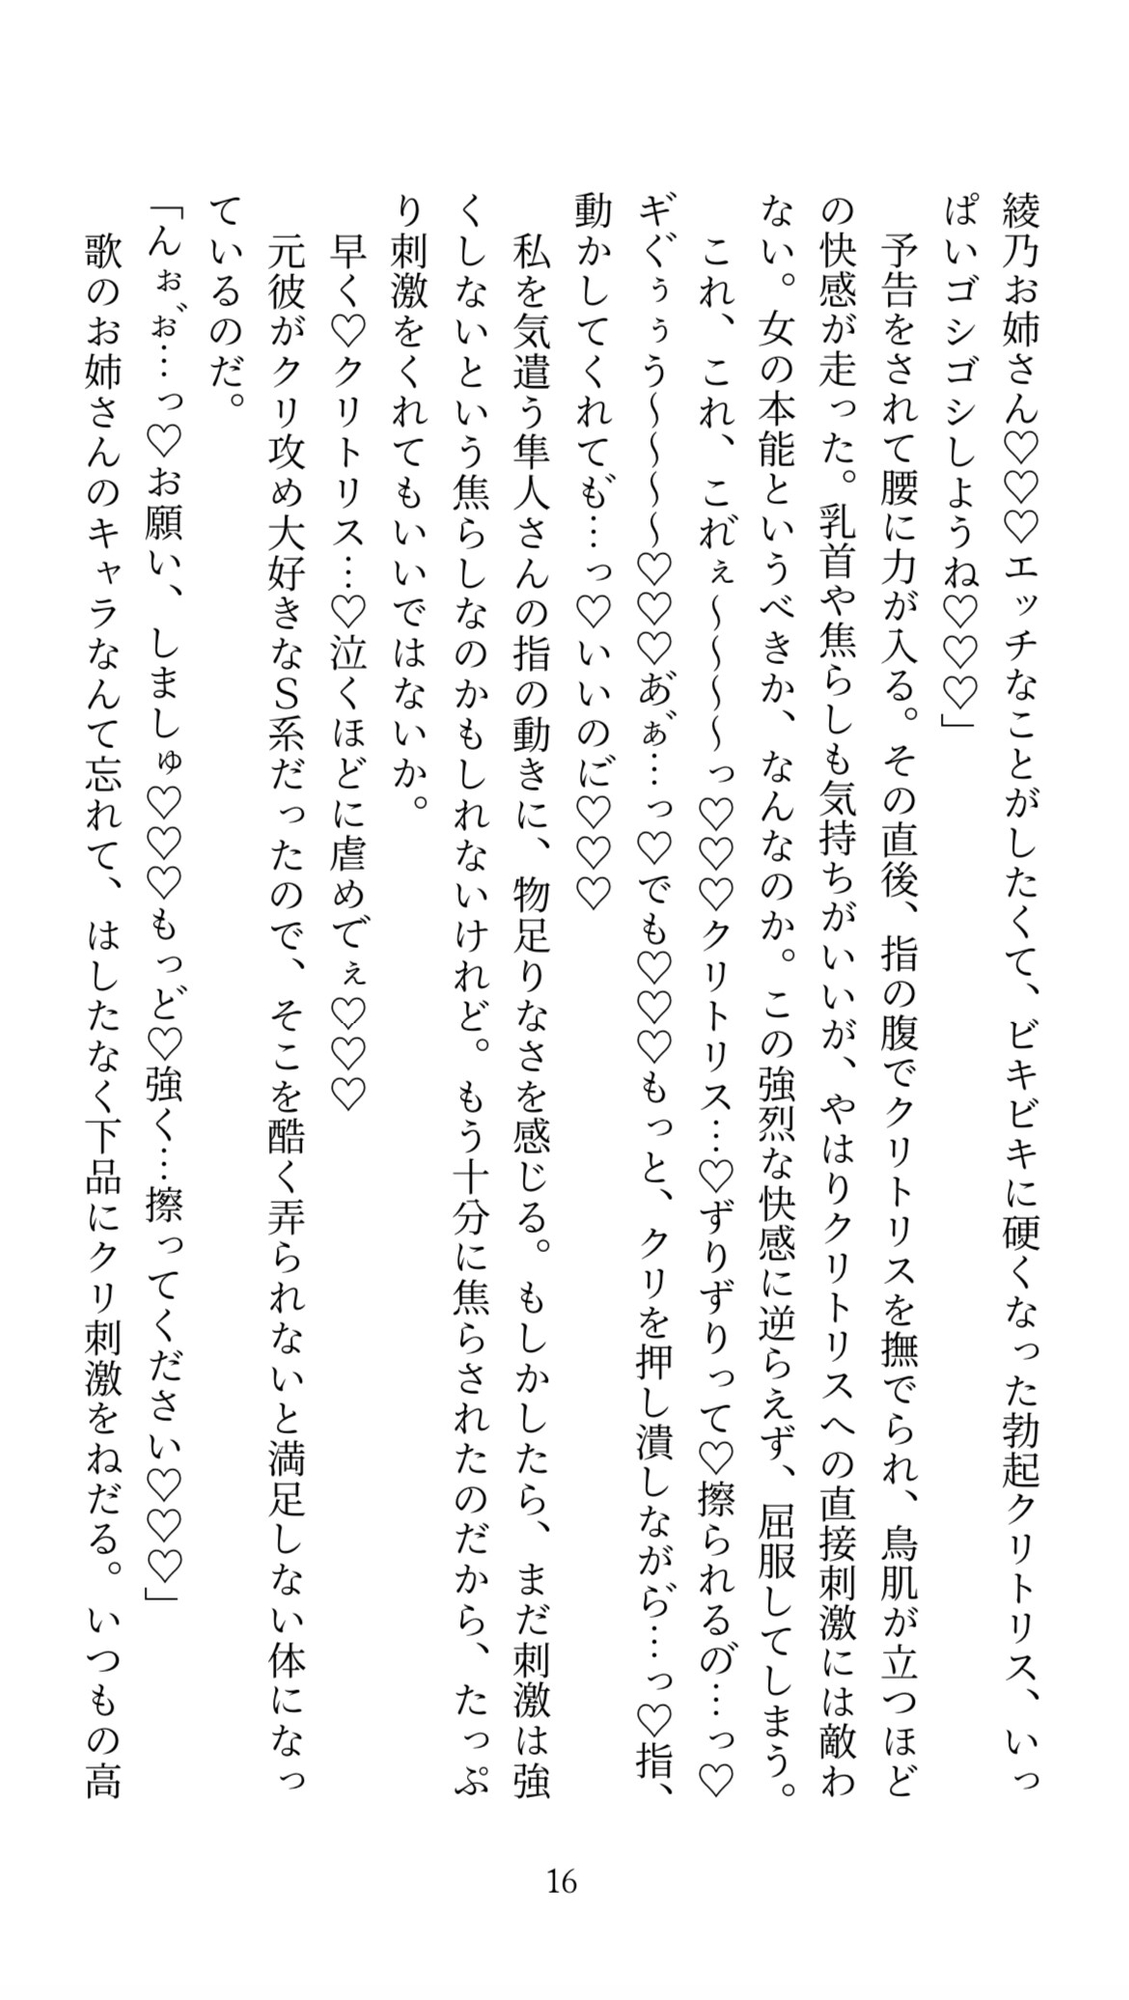 綾乃お姉さん♡♡♡エッチなことがしたくて、ビキビキに硬くなった勃起クリトリス、いっ
ぱいゴシゴシしようね♡♡♡」
　予告をされて腰に力が入る。その直後、指の腹でクリトリスを撫でられ、鳥肌が立つほど
の快感が走った。乳首や焦らしも気持ちがいいが、やはりクリトリスへの直接刺激には敵わ
ない。女の本能というべきか、なんなのか。この強烈な快感に逆らえず、屈服してしまう。
　これ、これ、これ゛ぇ～～～～っ♡♡♡クリトリス…♡ずりずりって♡擦られるの゛…っ♡
ギぐぅぅう～～～～♡♡♡あ゛ぁ゛…っ♡でも♡♡♡もっと、クリを押し潰しながら゛…っ♡指、
動かしてくれても゛…っ♡いいのに゛♡♡♡
　私を気遣う隼人さんの指の動きに、物足りなさを感じる。もしかしたら、まだ刺激は強
くしないという焦らしなのかもしれないけれど。もう十分に焦らされたのだから、たっぷ
り刺激をくれてもいいではないか。
　早く♡クリトリス…♡泣くほどに虐めでぇ♡♡♡
　元彼がクリ攻め大好きなＳ系だったので、そこを酷く弄られないと満足しない体になっ
ているのだ。
「んぉ゛ぉ゛…っ♡お願い、しましゅ♡♡♡もっど♡強く…擦ってください♡♡♡」
　歌のお姉さんのキャラなんて忘れて、はしたなく下品にクリ刺激をねだる。いつもの高
16